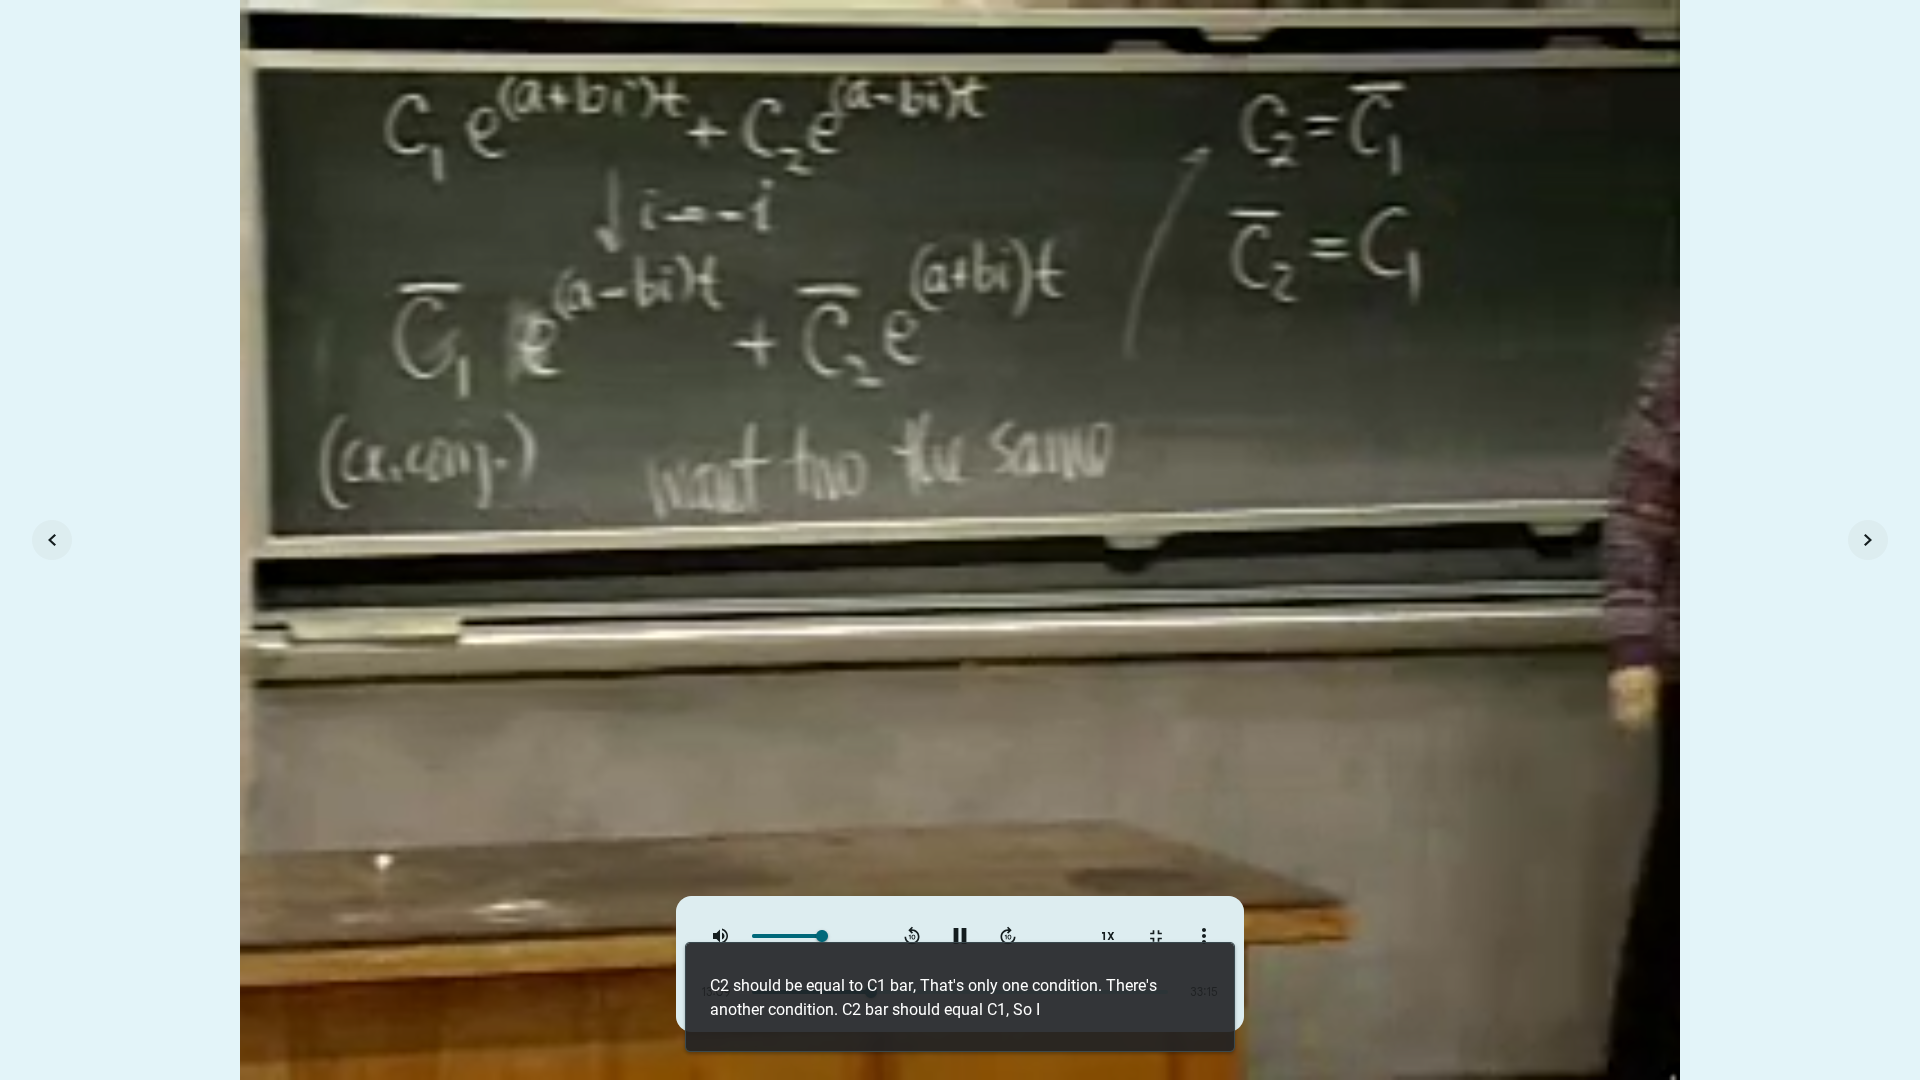 C₁ e^(a+bi)t + C₂e^(a-bi)t
↓ i → -i
C̅₁ e^(a-bi)t + C̅₂ e^(a+bi)t
(cx. conj.) want two the same
C₂ = C̅₁
C̅₂ = C₁
1X
33:15
C2 should be equal to C1 bar, That's only one condition. There's
another condition. C2 bar should equal C1, So I